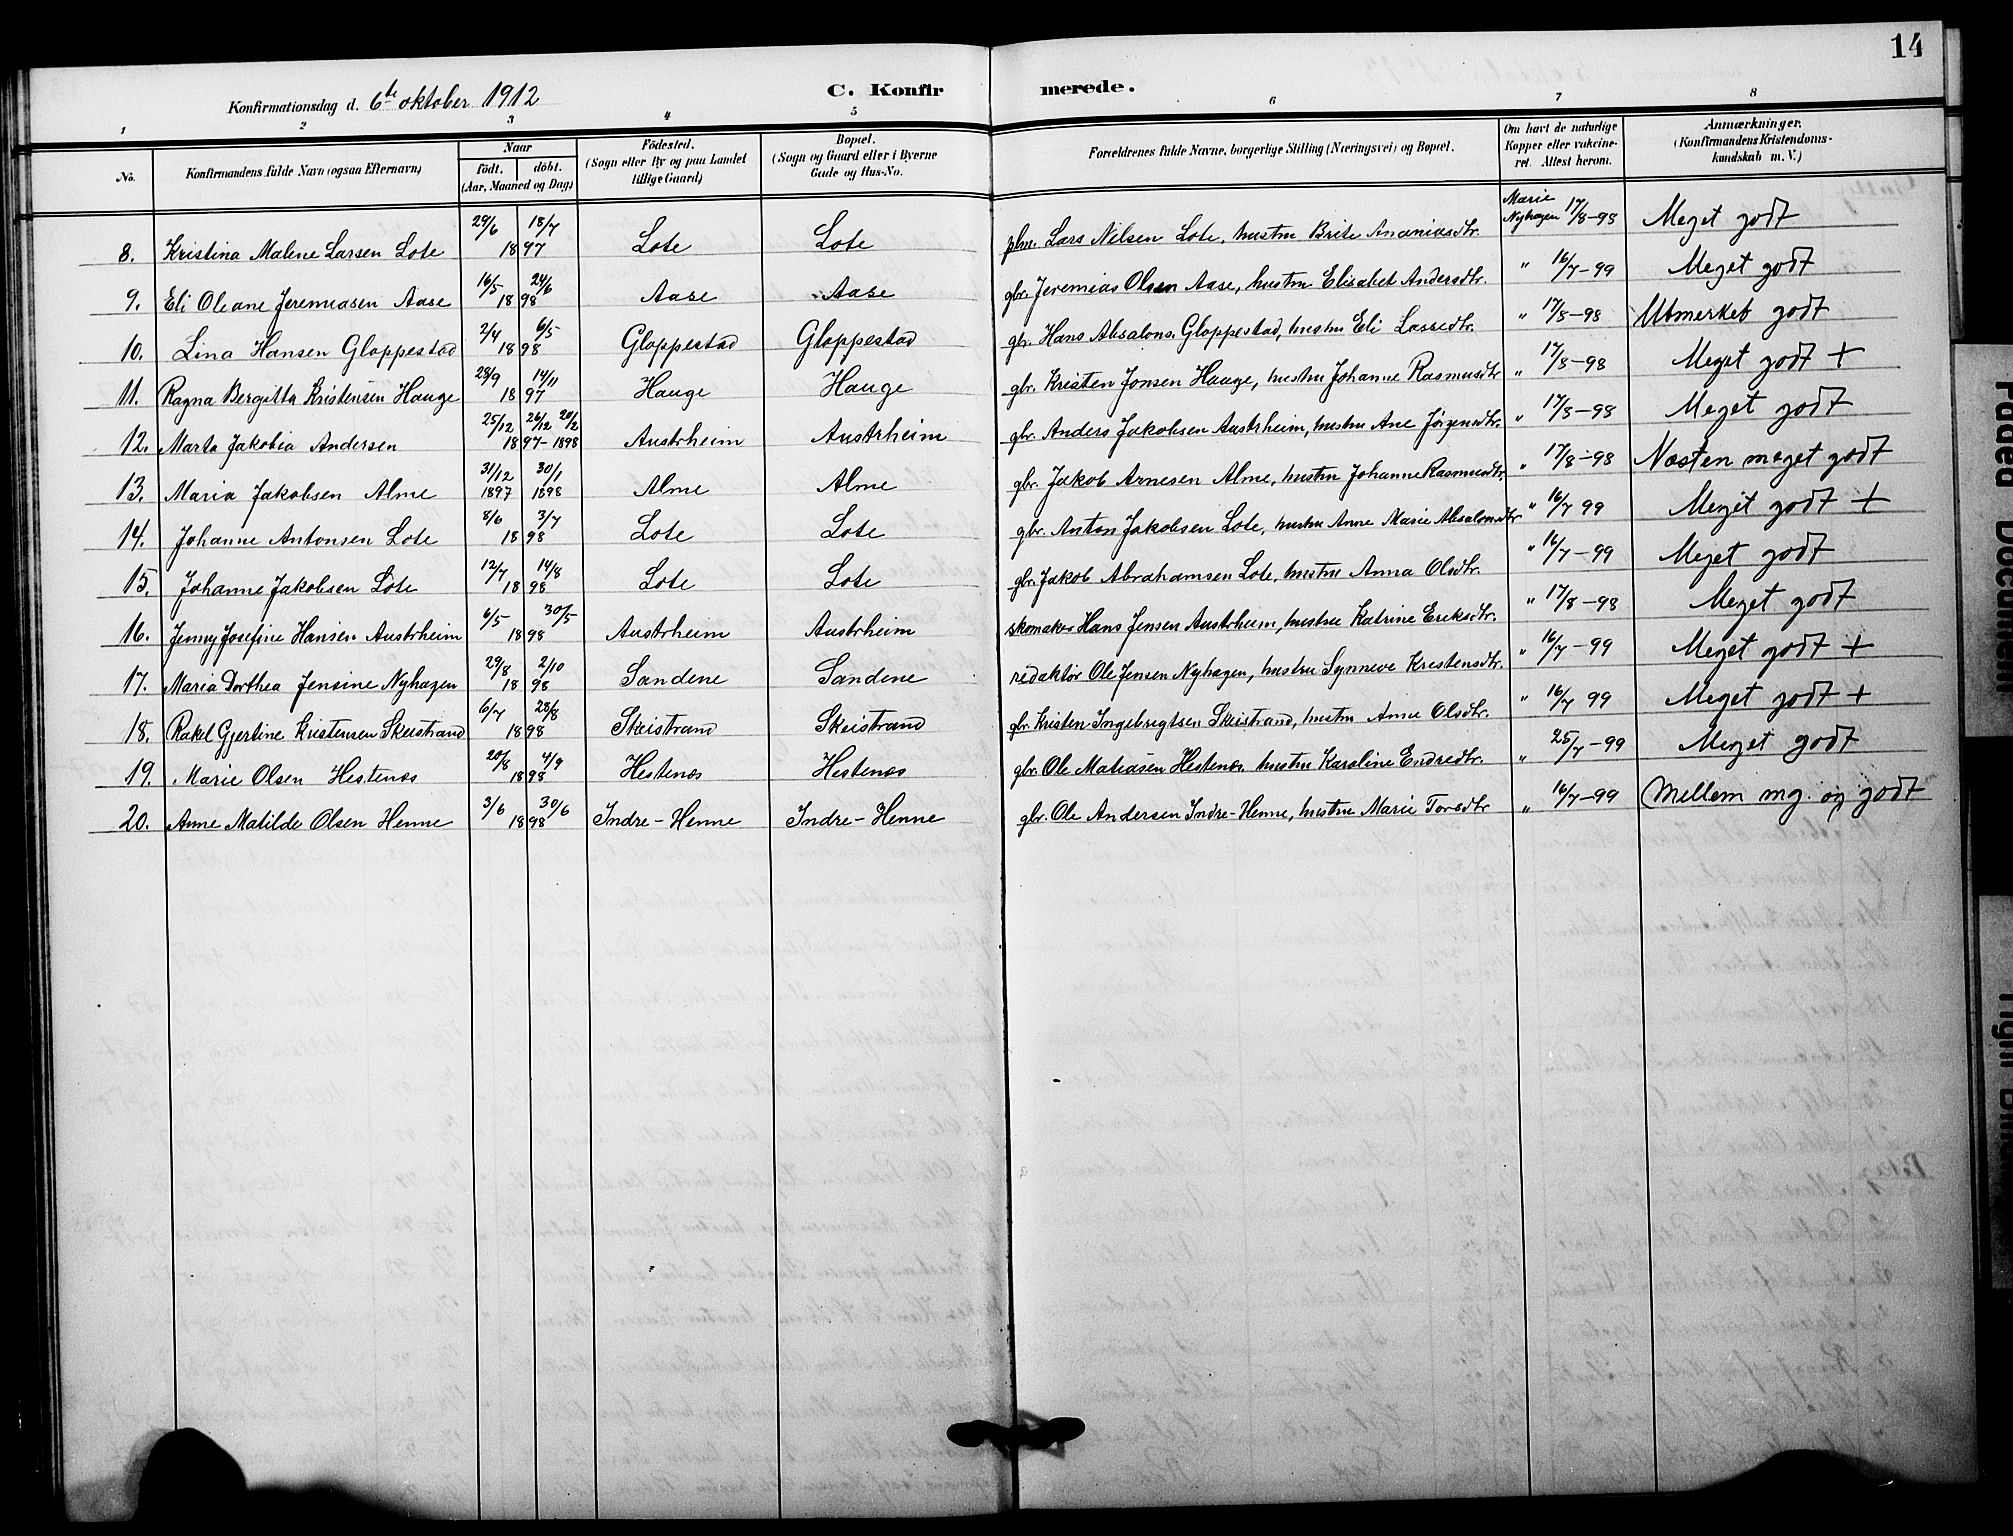 14
Konfirmationsdag d. 6te oktober 1912 C. Konfirmerede.
1 2 3 4 5 6 7 8
No. Konfirmandens fulde Navn (ogsaa Efternavn) Naar födt. döbt. (Aar, Maaned og Dag) Födested. (Sogn eller By og paa Landet tillige Gaard) Bopæl. (Sogn og Gaard eller i Byerne Gade og Hus-No. Forældrenes fulde Navne, borgerlige Stilling (Næringsvei) og Bopæl. Om havt de naturlige Kopper eller vakcineret. Attest herom. Anmærkninger. (Konfirmandens Kristendomskundskab m. V.)
8. Kristina Malene Larsen Lote 29/6 18/7 1897 Lote Lote plm. Lars Nilsen Lote, hustru Brite Ananiasdtr. Marie Nyhagen 17/8-98 Meget godt
9. Eli Oleane Jeremiasen Aase 16/5 24/6 1898 Aase Aase gbr. Jeremias Olsen Aase, hustru Elisabet Andersdtr. " 16/7-99 Meget godt
10. Lina Hansen Gloppestad 2/4 6/5 1898 Gloppestad Gloppestad gbr. Hans Absalons. Gloppestad, hustru Eli Lassedtr. " 17/8-98 Utmerket godt
11. Ragna Bergitta Kristensen Hauge 28/9 14/11 1897 Hauge Hauge gbr. Kristen Jonsen Hauge, hustru Johanne Rasmusdtr " 17/8-98 Meget godt +
12. Marta Jakobia Andersen 25/12 26/12 20/2 1897-1898 Austrheim Austrheim gbr. Anders Jakobsen Austrheim, hustru Ane Jørgensdtr. " 17/8-98 Meget godt
13. Maria Jakobsen Alme 31/12 1897 30/1 1898 Alme Alme gbr. Jakob Arnesen Alme, hustru Johanne Rasmusdtr. " 17/8-98 Næsten meget godt
14. Johanne Antonsen Lote 8/6 3/7 1898 Lote Lote gbr. Anton Jakobsen Lote, hustru Anne Marie Absalonsdtr " 16/7 99 Meget godt +
15. Johanne Jakobsen Lote 12/7 14/8 1898 Lote Lote gbr. Jakob Abrahamsen Lote, hustru Anna Olsdtr. " 16/7-99 Meget godt
16. Jenny Josefine Hansen Austrheim 6/5 30/5 1898 Austrheim Austrheim skomaker Hans Jensen Austrheim, hustru Katrine Eriksdtr. " 17/8-98 Meget godt
17. Maria Dorthea Jensine Nyhagen 29/8 2/10 1898 Sandene Sandene redaktør Ole Jensen Nyhagen, hustru Synneve Kristensdtr. " 16/7-99 Meget godt +
18. Rakel Gjertine Kristensen Skeistrand 6/7 28/8 1898 Skeistrand Skeistrand gbr. Kristen Ingebrigtsen Skeistrand, hustru Anne Olsdtr. " 16/7 99 Meget godt +
19. Marie Olsen Hestenes 20/8 4/9 1898 Hestenes Hestenes gbr. Ole Matiasen Hestenes. hustru Karoline Endredtr. " 25/7-99 Meget godt
20. Anne Matilde Olsen Henne 3/6 30/6 1898 Indre-Henne Indre-Henne gbr. Ole Andersen Indre-Henne, hustru Marie Toredtr " 16/7-99 Mellem mg. og godt
Faded Document